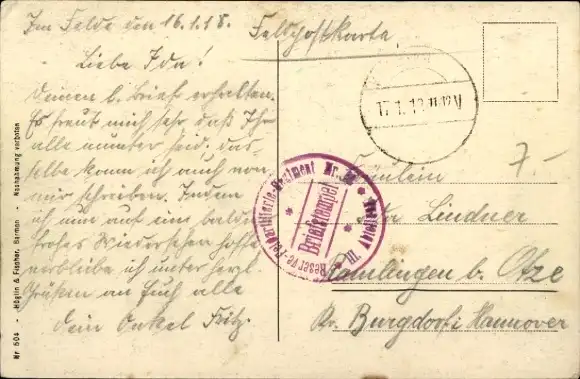 Im Felde den 16.1.18.
Feldpostkarte
Liebe Ida!
Deinen l. Brief erhalten.
Es freut mich sehr daß Ihr
alle munter seid; das-
selbe kann ich auch von
mir schreiben. Indem
ich nun auf ein baldi
frohes Wiedersehen hoffe
verbleibe ich unter herzl
Grüßen an Euch alle
Dein Onkel Fritz.
17.1.18
Reserve-Feldartillerie-Regiment Nr.
Briefstempel
III. Abteilung
7.-
Fräulein
Lindner
Ramlingen b. Otze
Kr. Burgdorf i Hannover
Nr 504 - Höglin & Fischer, Barmen - Nachahmung verboten